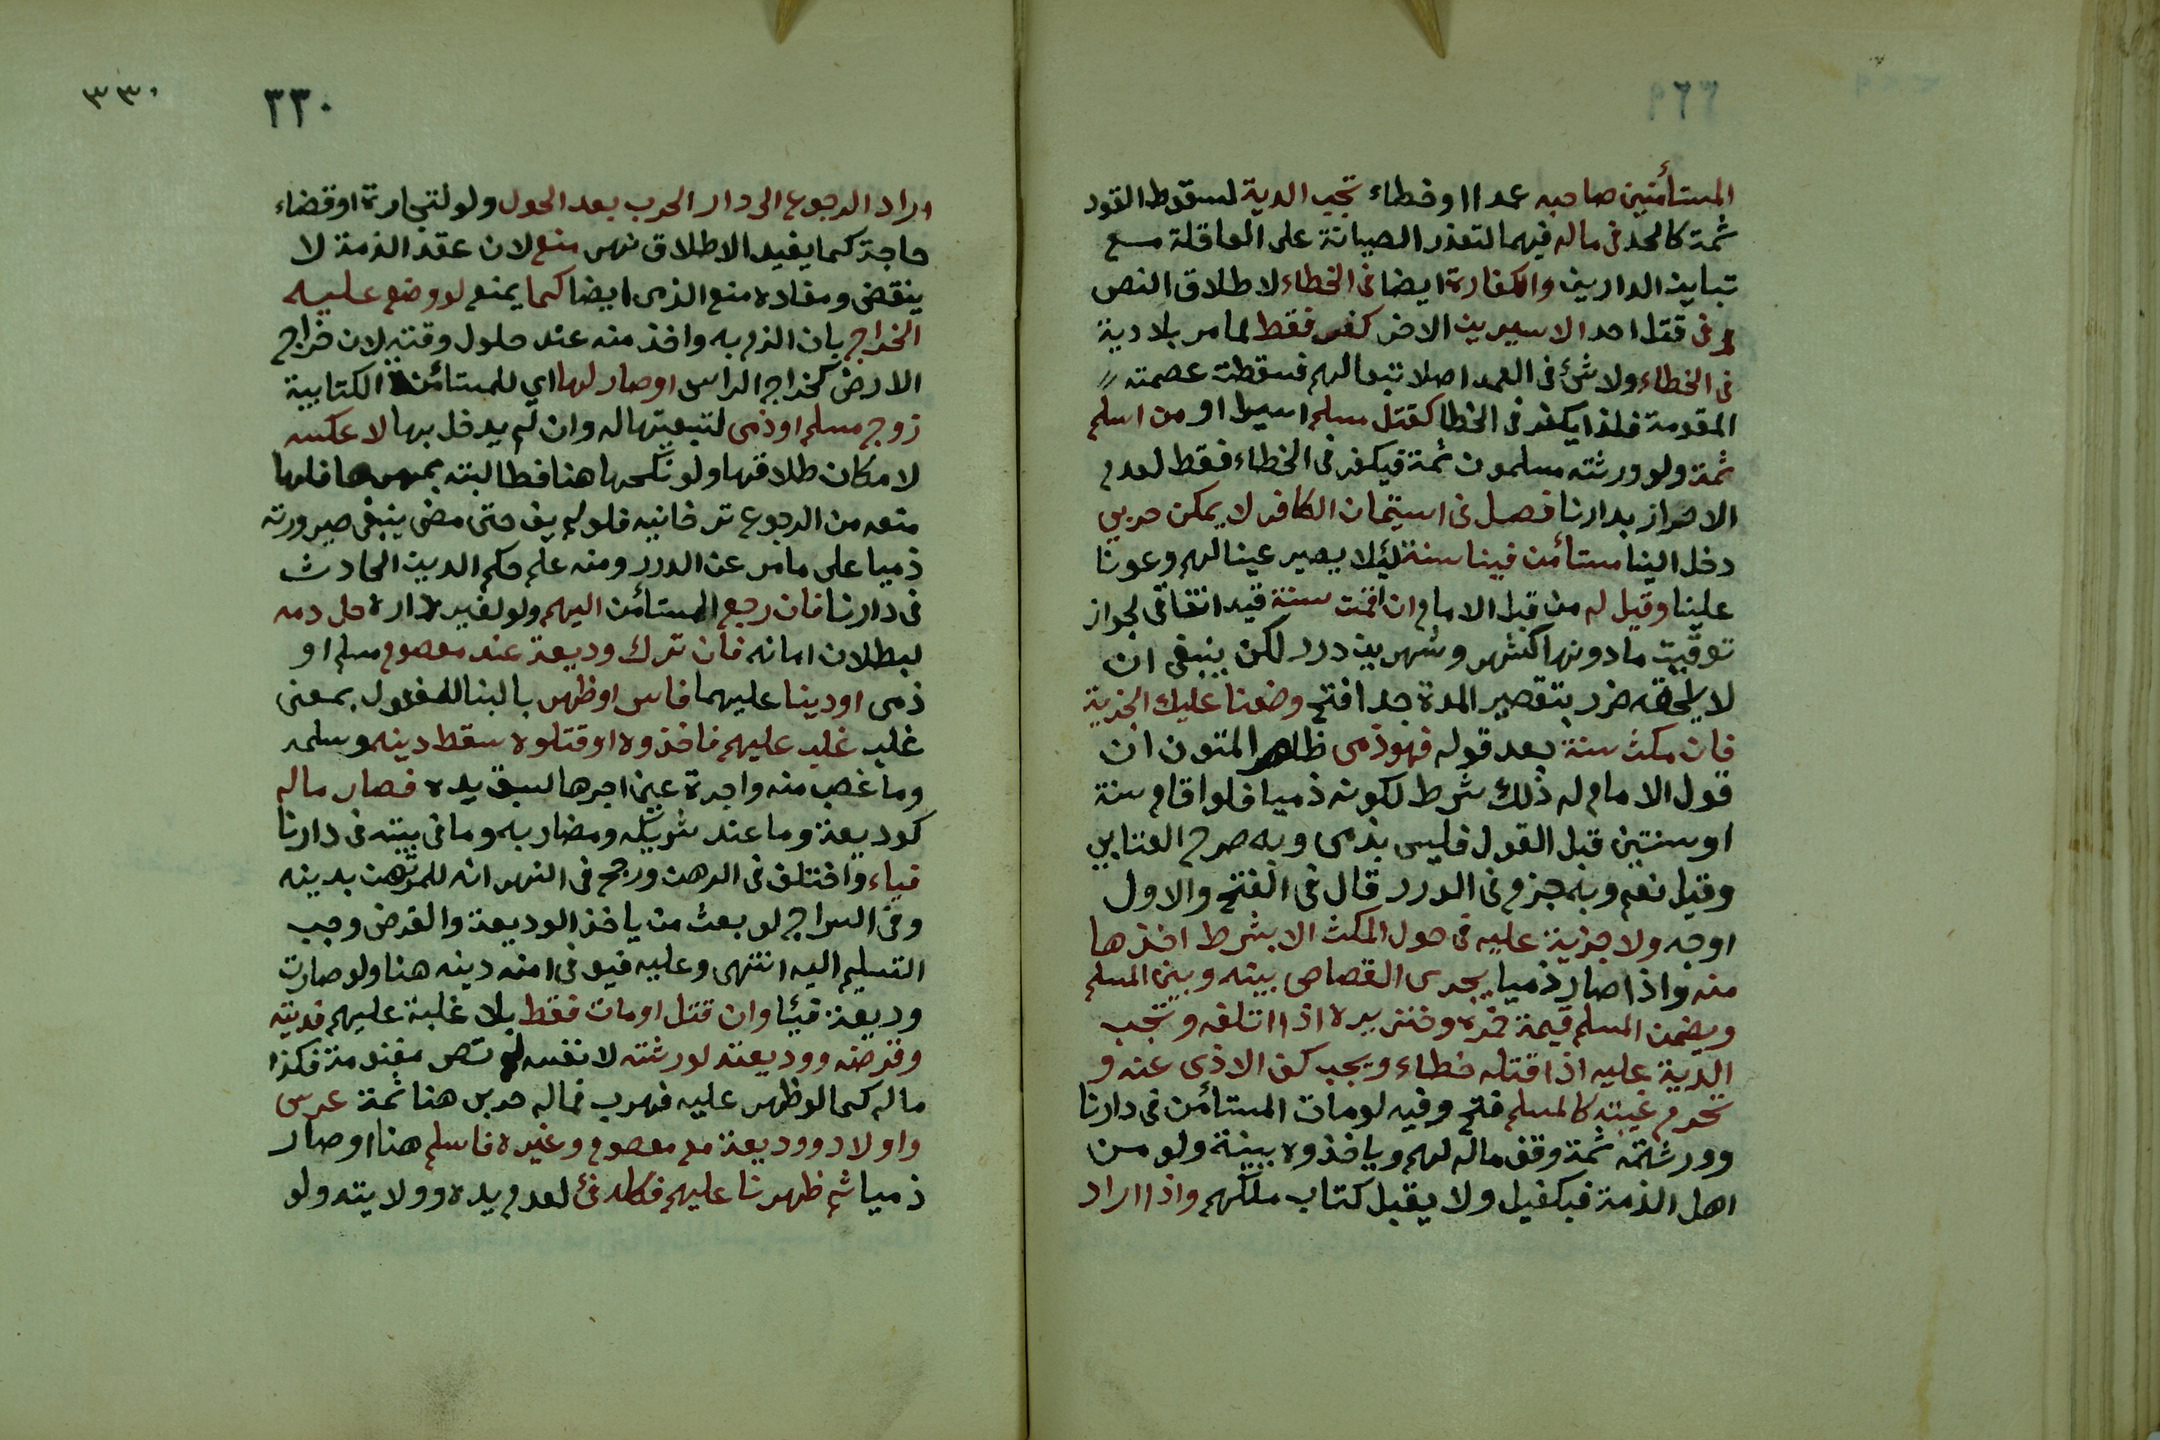 المستأمنين صاحبه عمدا او خطاء تجب الدية لسقوط القود
ثمة كالحد فى ماله فيهما لتعذر الصيانة على العاقلة مع
تباين الدارين والكفارة ايضا فى الخطاء لاطلاق النص
و فى قتل احد الاسيرين الاخر كفر فقط لما مر بلا دية
فى الخطاء ولا شئ فى العمد اصلا تبعا لهم فسقطت عصمته
المقومة فلذا يكفر فى الخطا كقتل مسلم اسيرا او من اسلم
ثمة ولو ورثته مسلمون ثمة فيكفر فى الخطاء فقط لعدم
الاحراز بدارنا فصل فى استيمان الكافر لا يمكن حربي
دخل الينا مستأمن فينا سنة ليئلا يصير عينا لهم وعونا
علينا وقيل له من قبل الامام ان اقمت سنة قيد اتفاقى لجواز
توقيت ما دونها كشهر وشهرين درر لكن ينبغى ان
لا يلحقه ضرر بتقصير المدة جدا فتح وضعنا عليك الجزية
فان مكث سنة بعد قوله فهو ذمى ظاهر المتون ان
قول الامام له ذلك شرط لكونه ذميا فلو اقام سنة
او سنتين قبل القول فليس بذمى وبه صرح العتابي
وقيل نعم وبه جزم فى الدرر قال فى الفتح والاول
اوجه ولا جزية عليه فى حول المكث الا بشرط اخذها
منه واذا صار ذميا يجرى القصاص بينه وبين المسلم
ويضمن المسلم قيمة خمره وخنزيره اذا اتلفه وتجب
الدية عليه اذا قتله خطاء ويجب كف الاذى عنه و
تحرم غيبته كالمسلم فتح وفيه لو مات المستأمن فى دارنا
وورثته ثمة وقف ماله لهم وياخذوه ببينة ولو من
اهل الذمة فبكفيل ولا يقبل كتاب ملكهم واذا اراد
٣٣٠
٣٣٠
اراد الرجوع الى دار الحرب بعد الحول ولو لتجارة او قضاء
حاجة كما يفيد الاطلاق نهر منع لان عقد الذمة لا
ينقض ومفاده منع الذمى ايضا كما يمنع لو وضع عليه
الخراج بان الزم به واخذ منه عند حلول وقته لان خراج
الارض كخراج الراس او صار لها اي للمستأمنة الكتابية
زوج مسلم او ذمى لتبعيتها له وان لم يدخل بها لا عكسه
لامكان طلاقها ولو نكحها هنا فطالبته بمهرها فلها
منعه من الرجوع تتر خانيه فلو لم يف حتى مضى ينبغى صيرورته
ذميا على ما مر عن الدرر ومنه علم حكم الدين الحادث
فى دارنا فان رجع المستأمن اليهم ولو لغير داره حل دمه
لبطلان امانه فان ترك وديعة عند معصوم مسلم او
ذمى او دينا عليهما فاسر او ظهر بالبنا للمفعول بمعنى
غلب غلب عليهم فاخذوه او قتلوه سقط دينه وسلمه
وما غصب منه واجرة عين اجرها لسبق يده فصار ماله
كوديعة وما عند شريكه ومضاربه وما فى بيته فى دارنا
فياء واختلف فى الرهن ورجح فى النهر انه للمرتهن بدينه
وفى السراج لو بعث من ياخذ الوديعة والقرض وجب
التسليم اليه انتهى وعليه فيو فى امنه دينه هنا ولو صارت
وديعة فيئا وان قتل او مات فقط بلا غلبة عليهم فديته
وقرضه ووديعته لورثته لا نفسه لم تصر مغنومة فكذا
ماله كما لو ظهر عليه فهرب فماله حربى هنا ثمة عرس
واولاد ووديعة مع معصوم وغيره فاسلم هنا او صار
ذميا ثم ظهرنا عليهم فكله فئ لعدم يده وولايته ولو